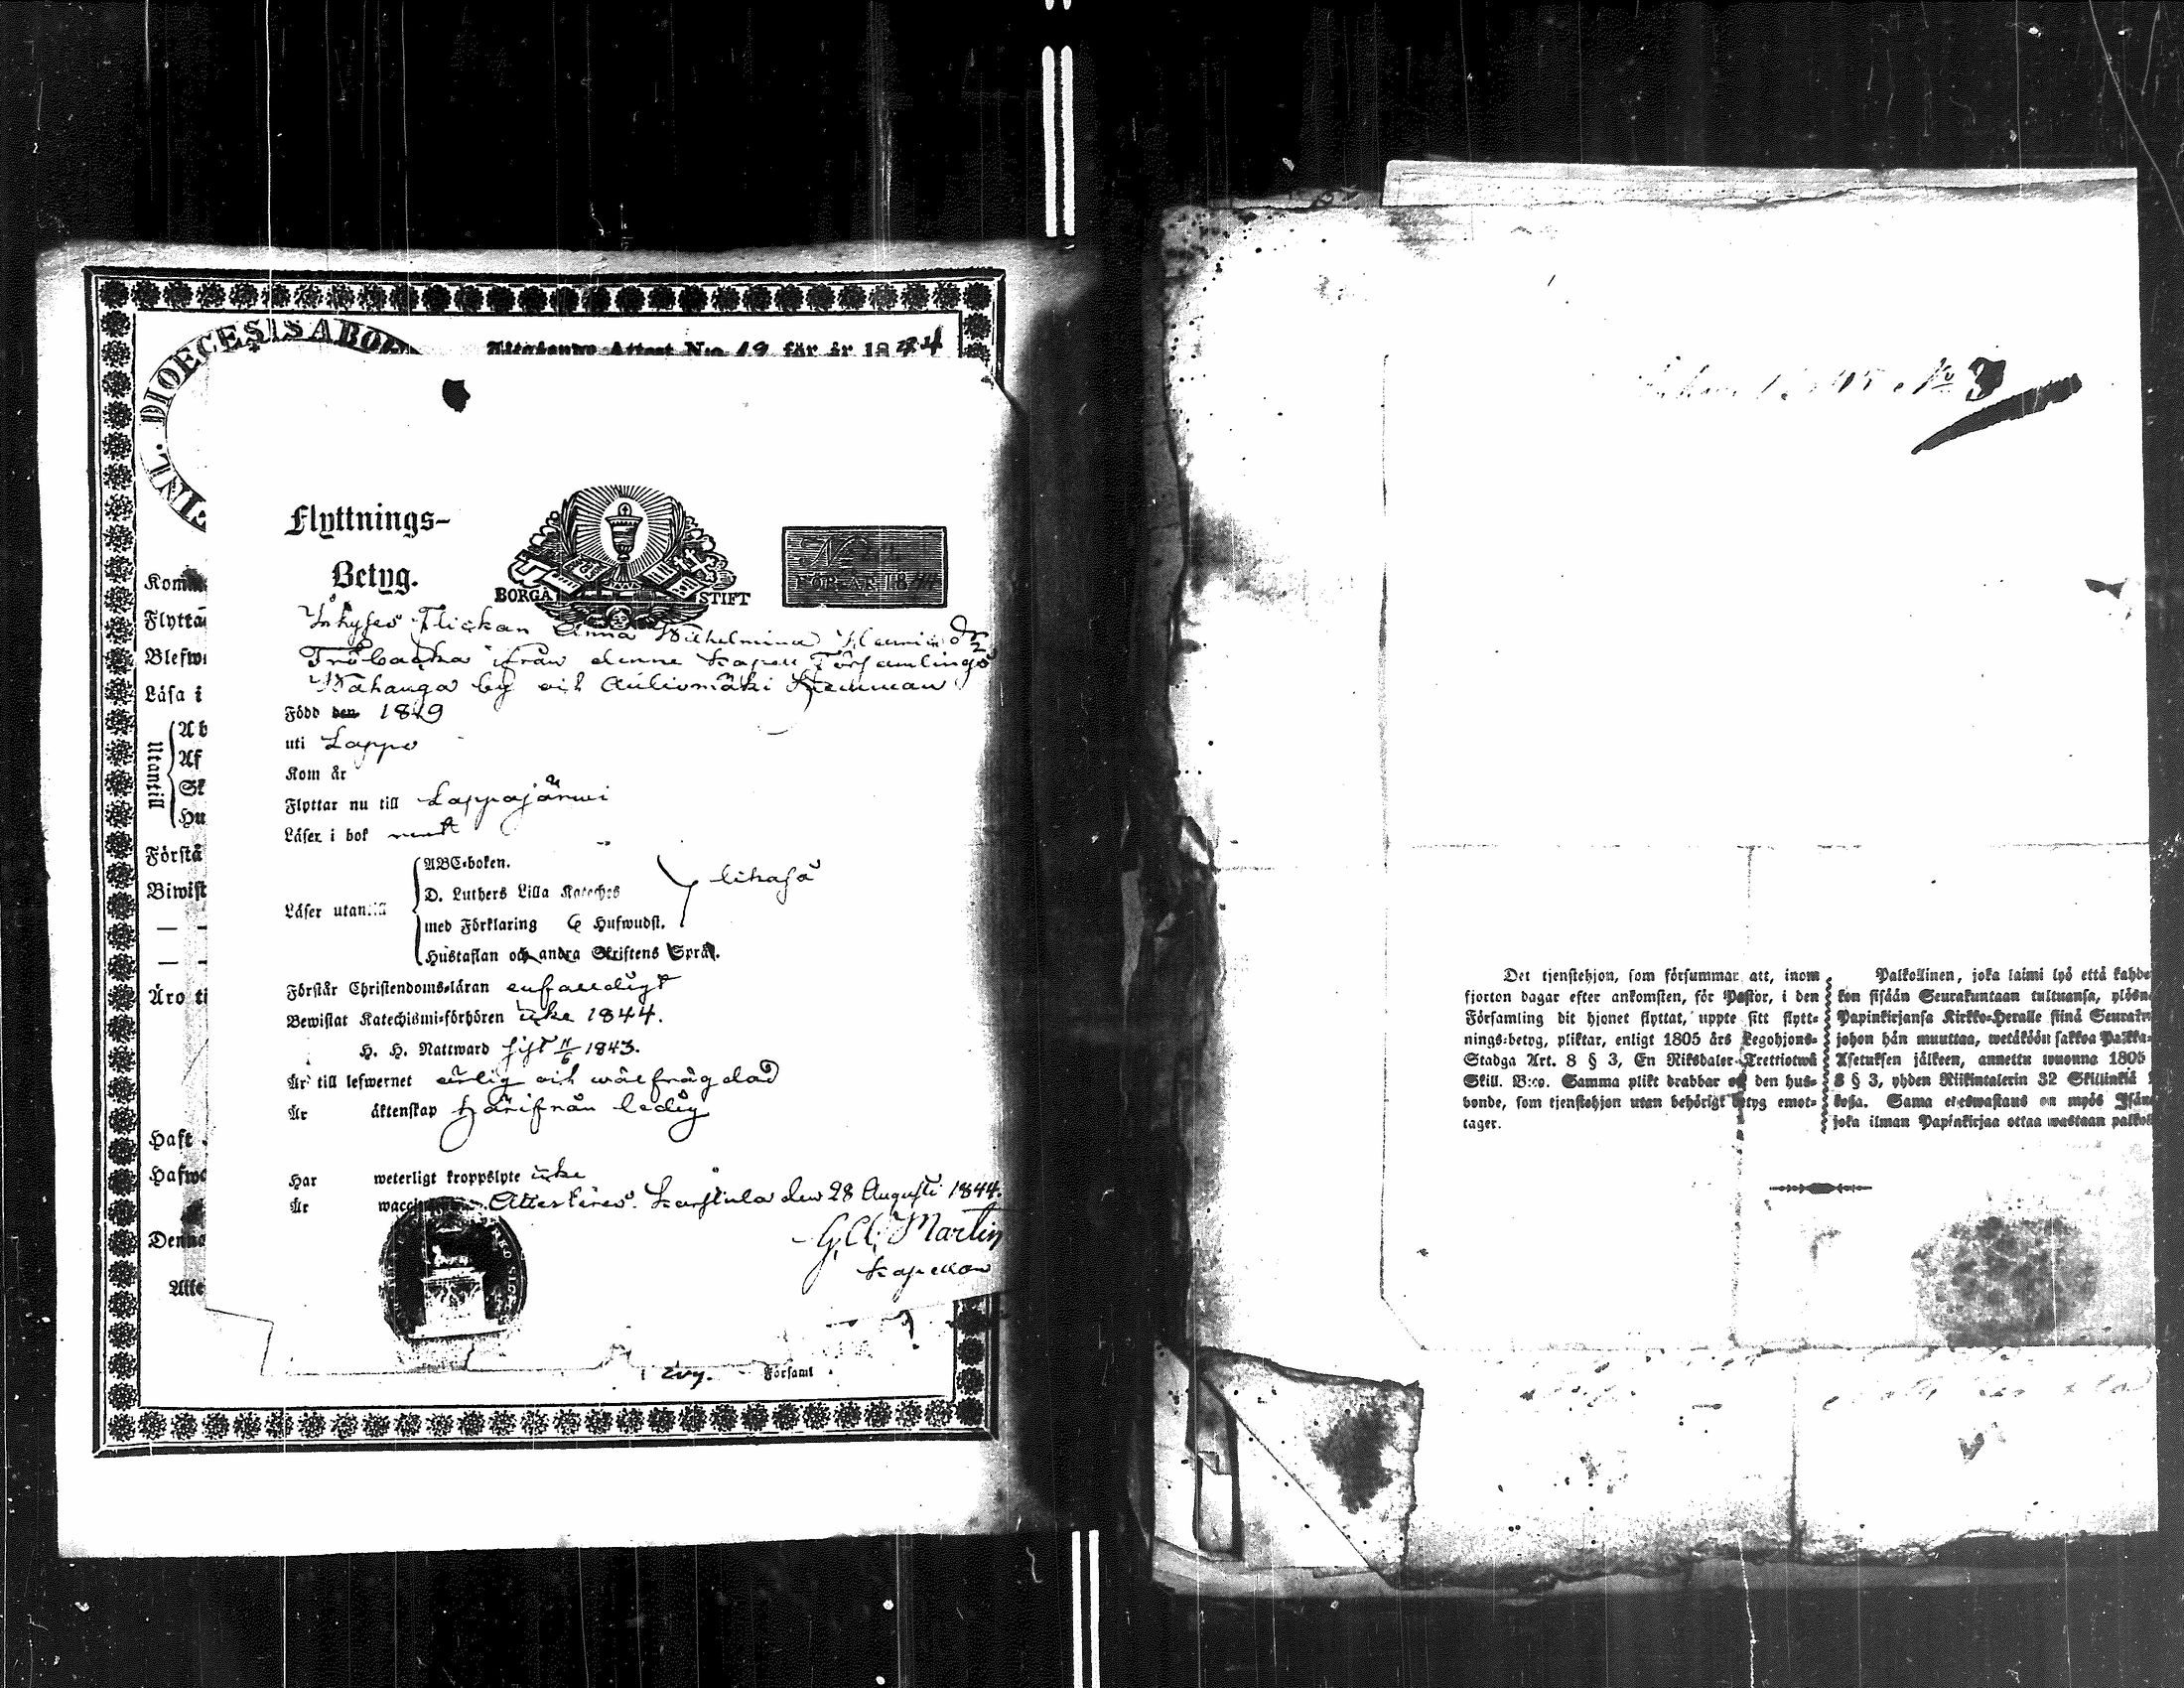 FINL. DIOECESIS ABO
Attest N:o 19 för år 1844
Kom
Flytta
Blefw
Läsa i
Utantill
Ab
Af
Sk
Hu
Förstå
Biwist
Äro ti
Haft
Hafwa
Denna
Atte
Flyttnings-
Betyg.
BORGÅ STIFT
No
FÖR ÅR 1844
Inhyses Flickan Anna Wilhelmina dr
Tröbacka ifrån denne Kapell Församlings
Wahanga by och Aulismäki Hemman
Född den 1819
uti Lappo
Kom år
Flyttar nu till Lappajärwi
Läser i bok rent
Läser utantill
ABC-boken.
D. Luthers Lilla Kateches
med Förklaring 6 Hufwudst.
Hustaflan och andra Skriftens Språk.
likaså
Förstår Christendoms-läran enfaldigt
Bewistat Katechismi-förhören icke 1844.
H. H. Nattward sist 11/6 1843.
Är till lefwernet ärlig och wälfrägdad
Är äktenskap härifrån ledig
Har weterligt kroppslyte icke
Är Attesteras. Karstula den 28 Augusti 1844.
G. A. Martin
Kapellan
Församl
No 3
Det tjenstehjon, som försummar att, inom
fjorton dagar efter ankomsten, för Pastor, i den
Församling dit hjonet flyttat, uppte sitt flytt-
nings-betyg, pliktar, enligt 1805 års Legohjons-
Stadga Art. 8 § 3, En Riksdaler Trettiotwå
Skill. B:co. Samma plikt drabbar ock den hus-
bonde, som tjenstehjon utan behörigt betyg emot-
tager.
Palkollinen, joka laimi lyö että kahde
kon sisään Seurakuntaan tultuansa, ylösn
Papinkirjansa Kirkko-Heralle siinä Seurakun
johon hän muuttaa, wetäköön sakkoa Palkka-
Asetuksen jälkeen, annettu wuonna 1805
8 § 3, yhden Riikintalerin 32 Skillinkiä
kosa. Sama edeswastaus on myös Isän
joka ilman Papinkirjaa ottaa wastaan palkol